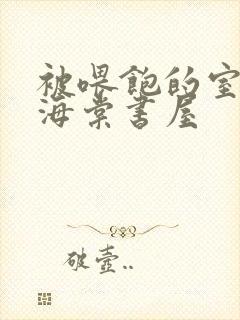 被喂饱的室
海棠书屋
破壶..